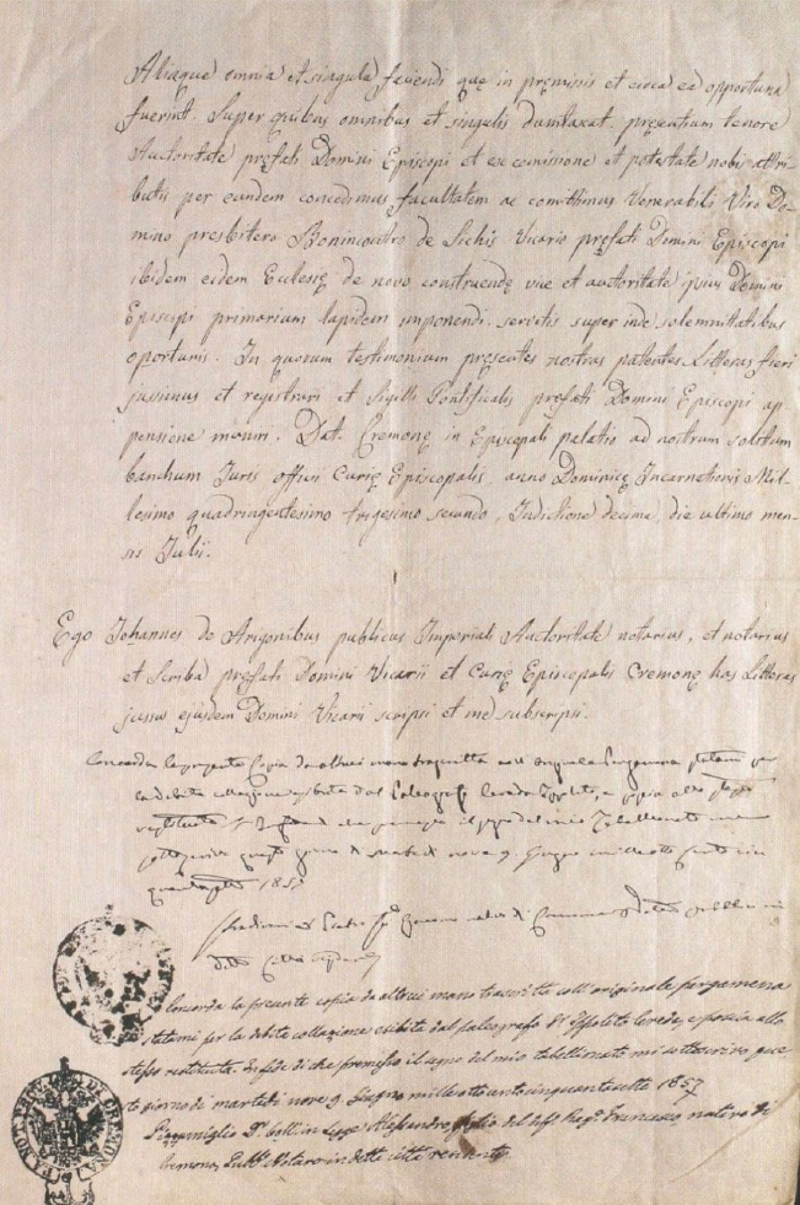 Aliaque omnia et singula faciendi quę in pręmissis et circa ea opportuna
fuerint. Super quibus omnibus et singulis dumtaxat. pręsentium tenore
Auctoritate pręfati Domini Episcopi et ex comissione et potestate nobis attri-
butis per eundem concedimus facultatem ac comithimus Venerabili Viro Do-
mino presbitero Bonincontro de Sichis Vicario pręfati Domini Episcopi
ibidem eidem Eclesię de novo construendę vice et auctoritate ipsius Domini
Episcopi primarium lapidem imponendi. servatis super inde solemnitatibus
oportunis. In quorum testimonium pręsentes nostras patentes Litteras fieri
jussimus et registrari et Sigilli Pontificalis pręfati Domini Episcopi ap-
pensione muniri. Dat. Cremonę in Episcopali palatio ad nostrum solitum
banchum Juris officii Curię Episcopalis, anno Dominicę Incarnationis Mil-
lesimo quadringentesimo trigesimo secundo, Indictione decima, die ultimo men-
sis Julii.
Ego Johannes de Arigonibus publicus Imperiali Auctoritate notarius, et notarius
et Scriba pręfati Domini Vicarii et Curię Episcopalis Cremonę has Litteras
jussu ejusdem Domini Vicarii scripsi et me subscripsi.
Concorda la presente Copia da altrui mano trascritta coll' originale Pergamena statami per
la debita collazione esibita dal Paleografo Cereda Ippolito, e poscia allo stesso
restituita. In fede di che premesso il segno del mio Tabellionato mi
sottoscrivo questo giorno di martedì nove 9. Giugno milleotto cento cin
quantasette 1857
di Cremona
detta Città
Concorda la presente copia da altrui mano trascritta coll'originale pergamena
statami per la debita collazione esibita dal paleografo Dr Ippolito Cereda, e poscia allo
stesso restituita. In fede di che premesso il segno del mio tabellionato mi sottoscrivo que-
sto giorno di martedì nove 9. Giugno milleottocentocinquantasette 1857
Pizzamiglio Dr. Bott. in Legge Alessandro figlio del Rag. Francesco nativo di
Cremona, Pubb. Notaro in detta città residente.
DI CREMONA